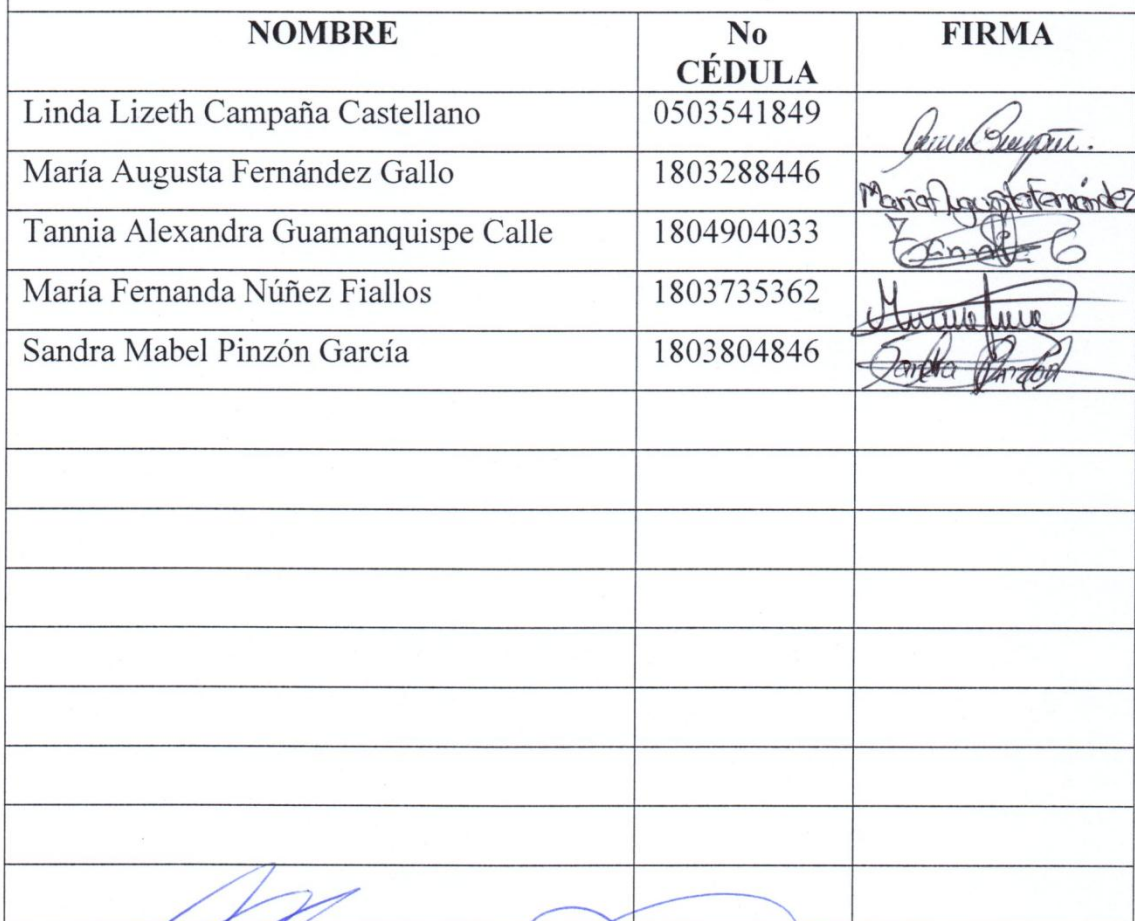 NOMBRE
No
CÉDULA
FIRMA
Linda Lizeth Campaña Castellano 0503541849
María Augusta Fernández Gallo 1803288446 María Augusta Fernández
Tannia Alexandra Guamanquispe Calle 1804904033
María Fernanda Núñez Fiallos 1803735362
Sandra Mabel Pinzón García 1803804846 Sandra Pinzón